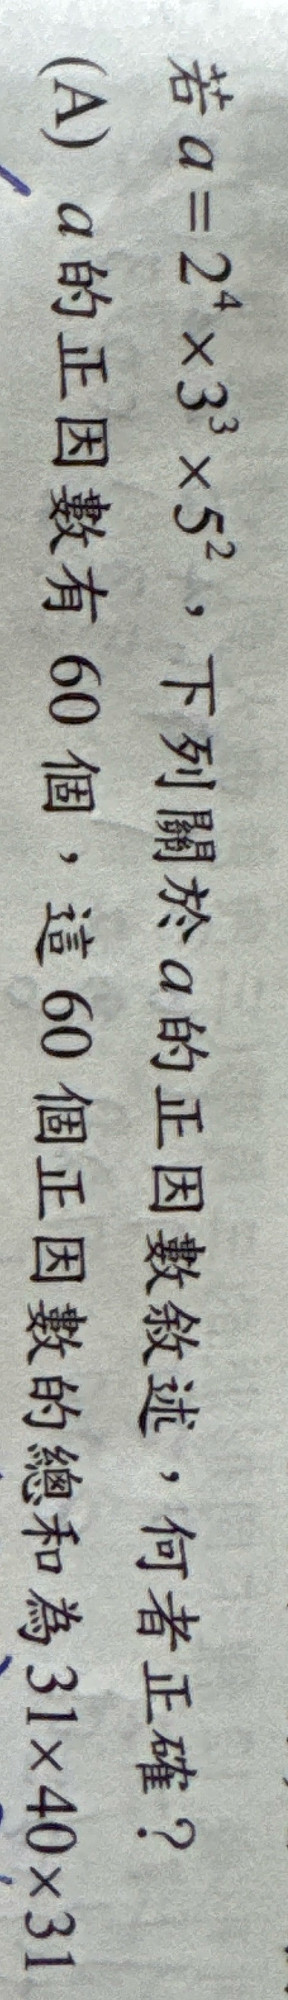 若 a = 2⁴ × 3³ × 5²，下列關於 a 的正因數敘述，何者正確？
(A) a 的正因數有 60 個，這 60 個正因數的總和為 31×40×31